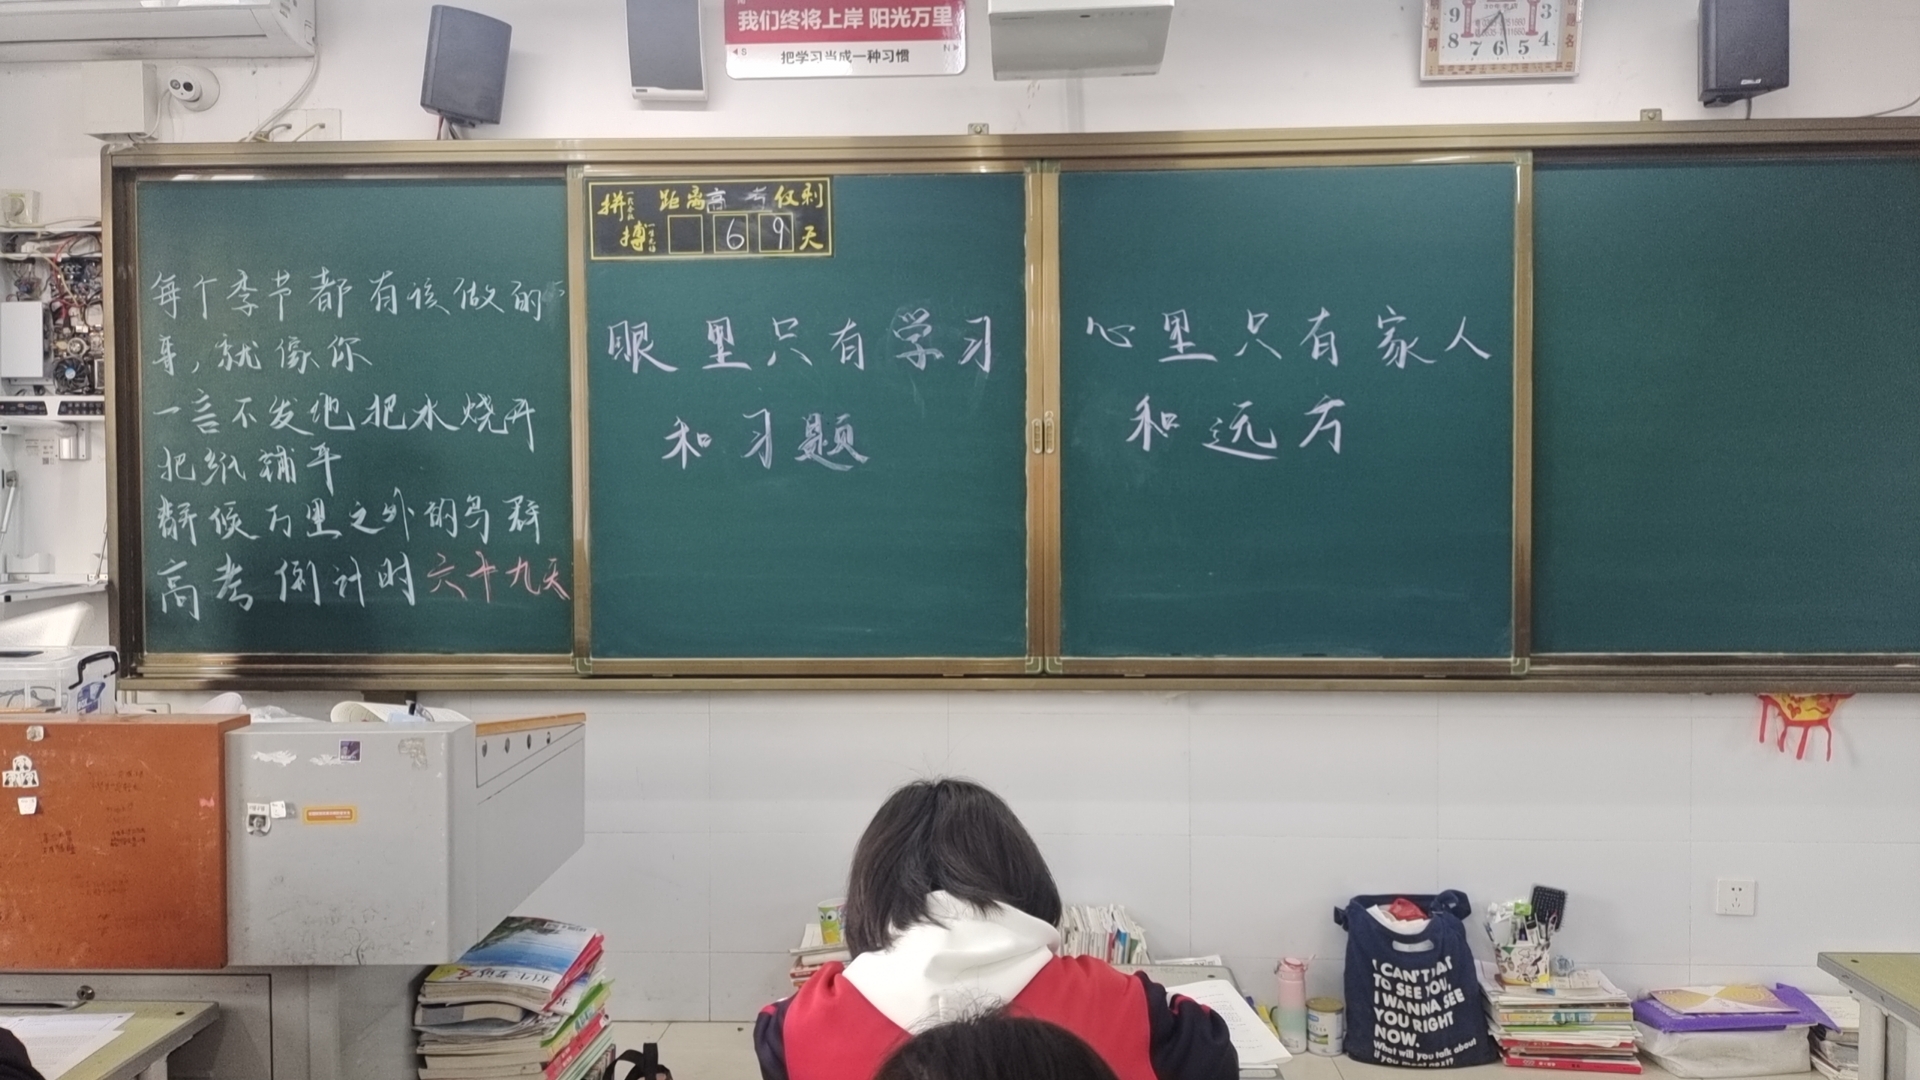 我们终将上岸 阳光万里
把学习当成一种习惯
9
3
8
7
6
5
4
拼
搏
距离高考仅剩
69天
每个季节都有该做的
事,就像你
一言不发地把水烧开
把纸铺平
静候万里之外的鸟群
高考倒计时六十九天
眼里只有学习
和习题
心里只有家人
和远方
I CAN'T WAIT
TO SEE YOU,
I WANNA SEE
YOU RIGHT
NOW.
What will you talk about
if you meet next?